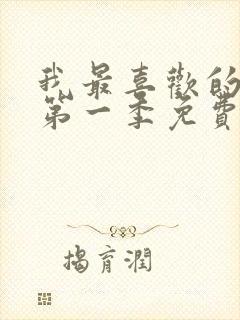 我最喜歡的
第一季免費
揭育潤